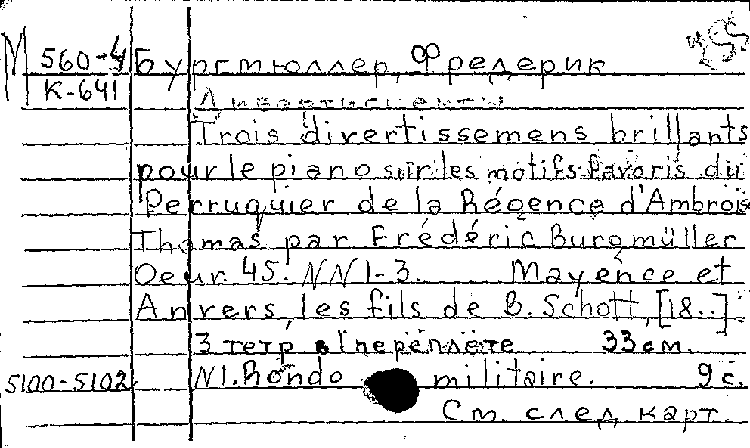 М 560-4 Бургмюллер, Фредерик
К-641
Дивертисменты
Trois divertissemens brillants
pour le piano sur les motifs favoris du
Perruquier de la Régence d'Ambrois
Thomas par Frédéric Burgmüller
Oeur. 45. NN 1-3. Mayence et
Anvers, les fils de B. Schott, [18..]
3 тетр. в 1 переплете 33 см.
5100-5102 N1. Rondo militaire. 9 с.
См. след. карт.